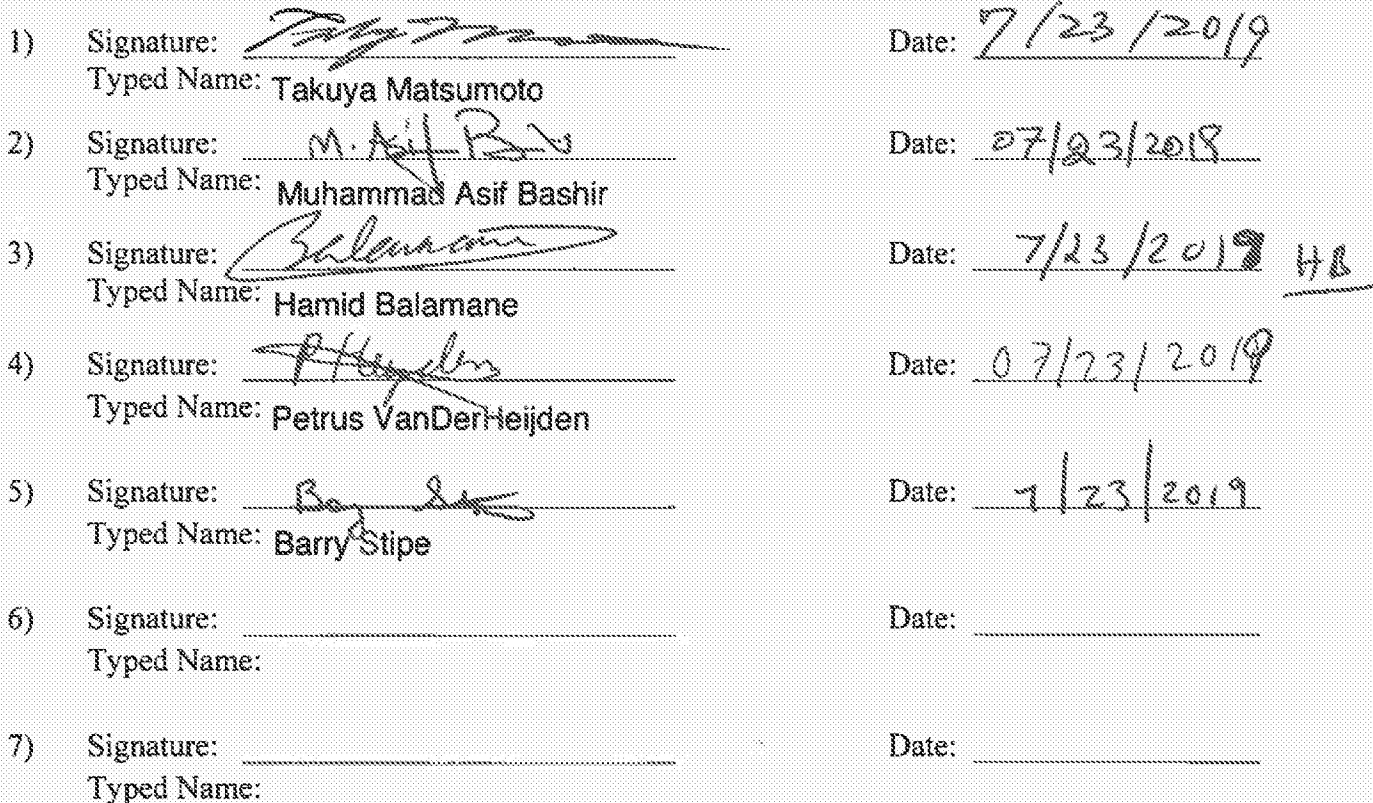 1) Signature: Date: 7/23/2019
Typed Name: Takuya Matsumoto
2) Signature: M. Asif Date: 07/23/2019
Typed Name: Muhammad Asif Bashir
3) Signature: Balamane Date: 7/23/2019 HB
Typed Name: Hamid Balamane
4) Signature: Date: 07/23/2019
Typed Name: Petrus VanDerHeijden
5) Signature: Date: 7/23/2019
Typed Name: Barry Stipe
6) Signature: Date:
Typed Name:
7) Signature: Date:
Typed Name: